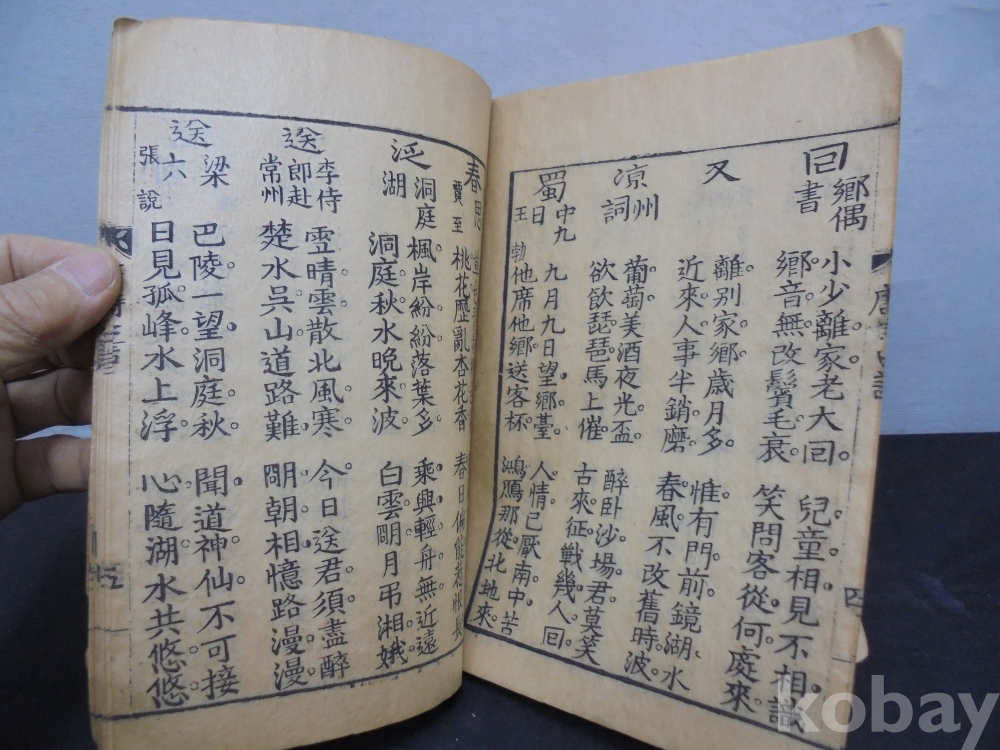 回鄉偶書
小少離家老大回
鄉音無改鬢毛衰
兒童相見不相識
笑問客從何處來
又
離別家鄉歲月多
近來人事半銷磨
惟有門前鏡湖水
春風不改舊時波
涼州詞
葡萄美酒夜光盃
欲飲琵琶馬上催
醉卧沙場君莫笑
古來征戰幾人回
蜀中九日
王勃
九月九日望鄉臺
他席他鄉送客杯
人情已厭南中苦
鴻鴈那從北地來
四
春思
賈至
桃花歷亂杏花香
泛洞庭湖
楓岸紛紛落葉多
洞庭秋水晚來波
乘興輕舟無近遠
白雲明月弔湘娥
送李侍郎赴常州
雪晴雲散北風寒
楚水吳山道路難
今日送君須盡醉
明朝相憶路漫漫
送梁六
張說
巴陵一望洞庭秋
日見孤峰水上浮
聞道神仙不可接
心隨湖水共悠悠
kobay